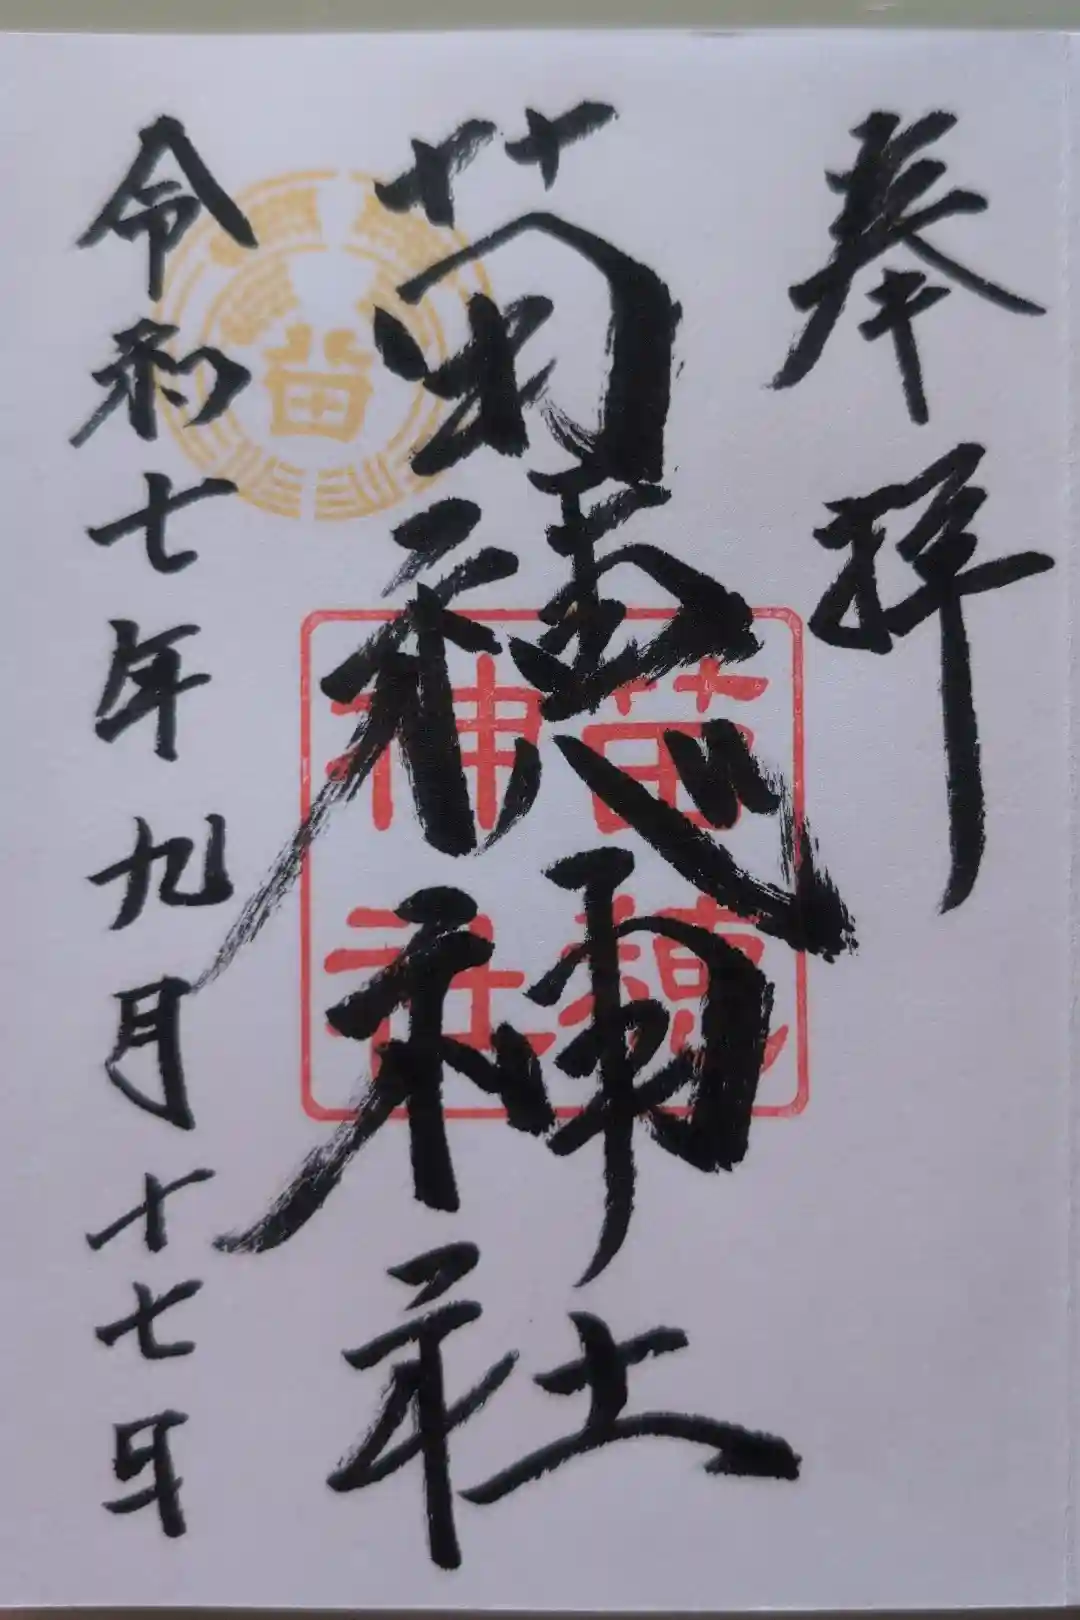 奉拝
苗穂神社
令和七年九月十七日
苗
苗穂
神社